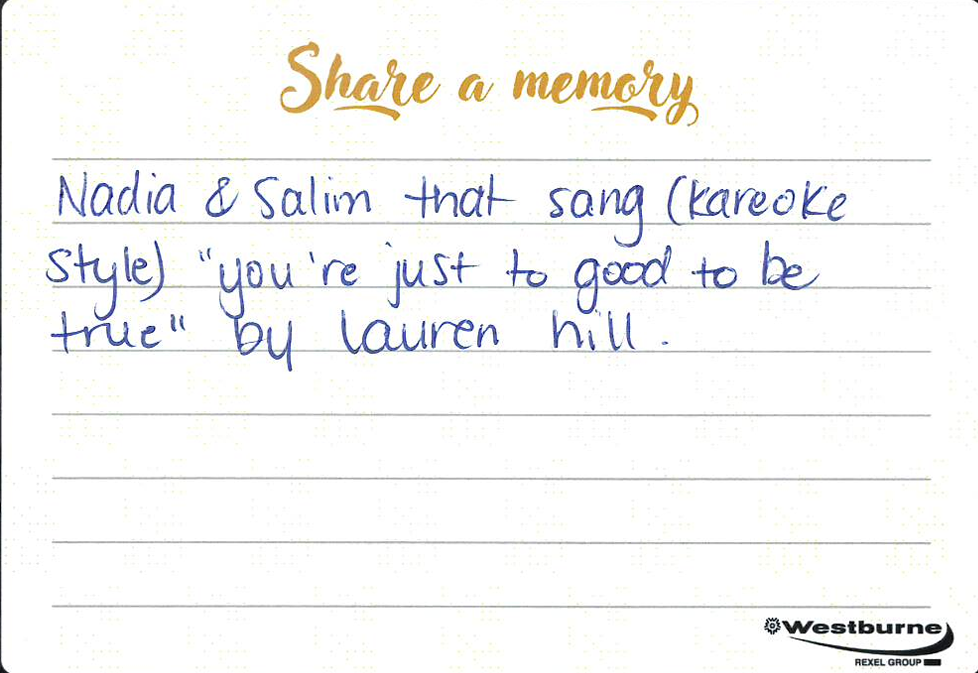 Share a memory
Nadia & Salim that sang (kareoke
style) "you're just to good to be
true" by lauren hill.
Westburne
REXEL GROUP